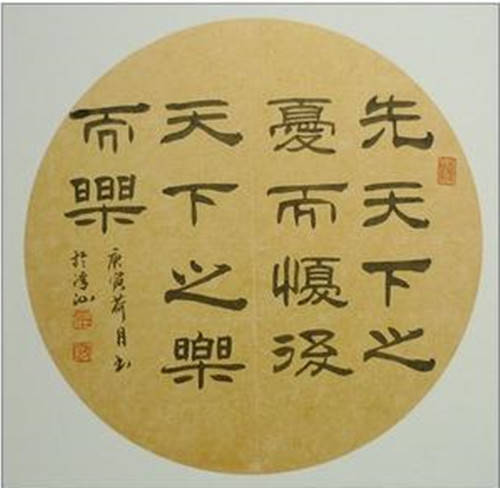 先天下之
憂而懮後
天下之樂
而樂
庚寅荷月书
於